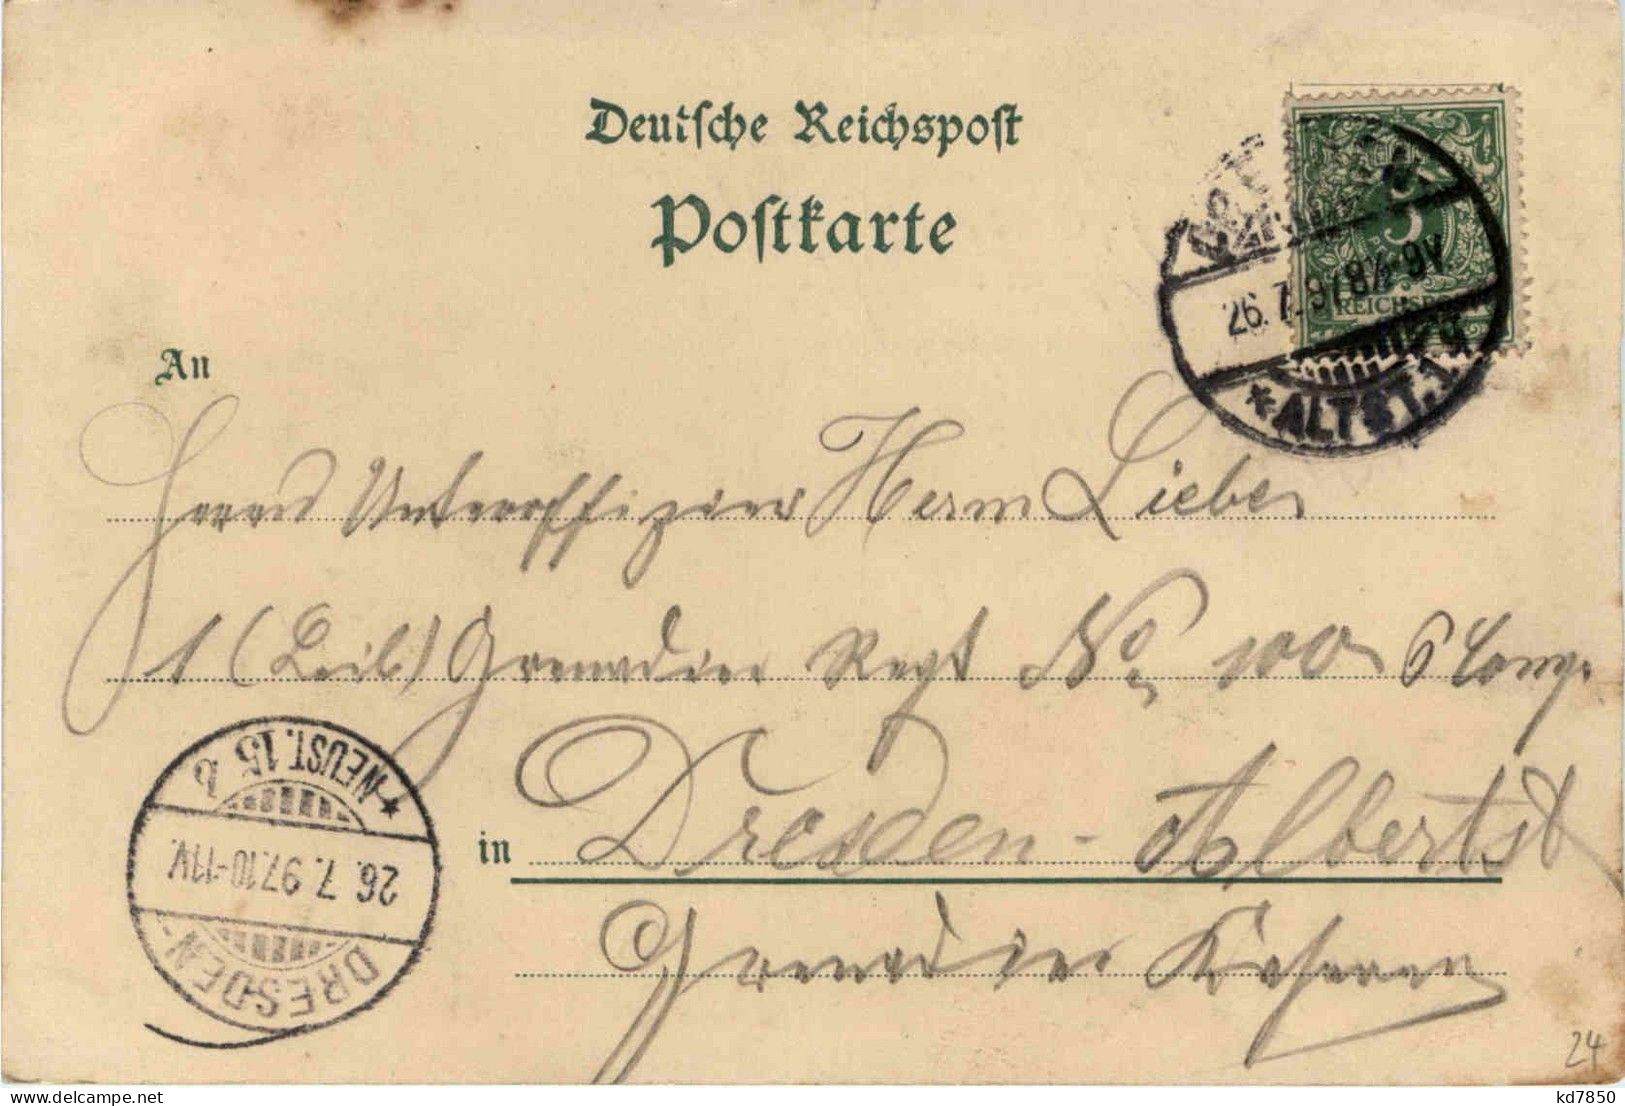 Deutsche Reichspost
Postkarte
26.7.97 8½-9V.
REICHSPOST
*ALTST.1
An
Herrn Unteroffizier Herm Lieber
1 (Leib) Grenadier Regt No 100 6 Comp.
in Dresden-Albertst
Grenadier Kaserne
*NEUST.15 b
26.7.97.10-11V.
DRESDEN-
24
delcampe.net
kd7850